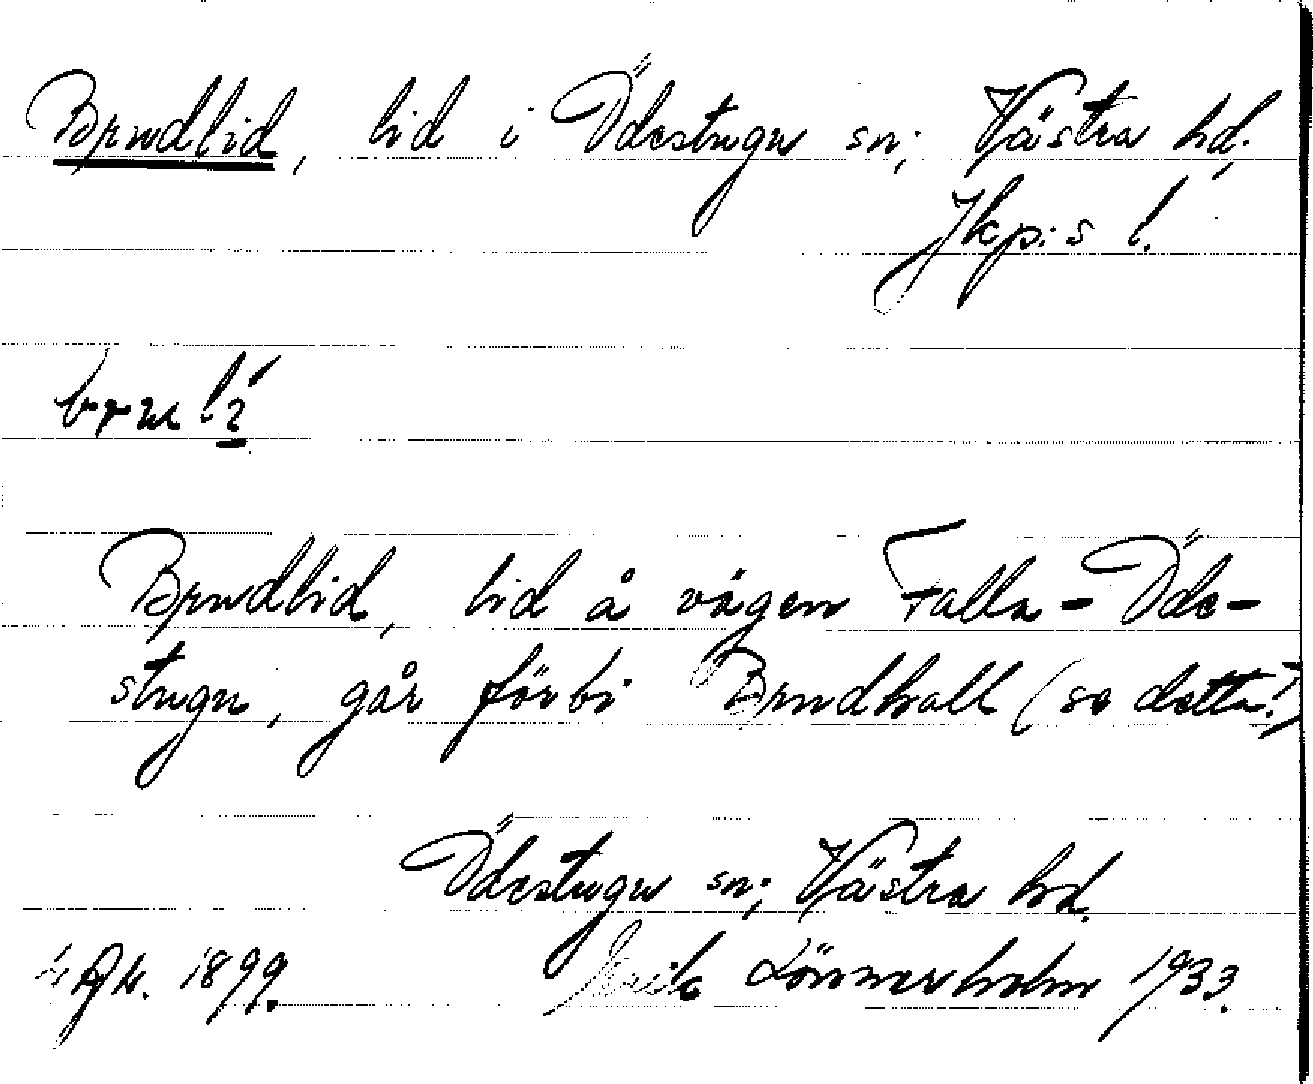 Brudlid, lid i Ödestugu sn; Västra hd,
Jkp:s l.
Brudlid, lid å vägen Falla - Öde-
stugu, går förbi Brudhall (se detta!)
Ödestugu sn; Västra hd.
1899. Erik Lönnerholm 1933.